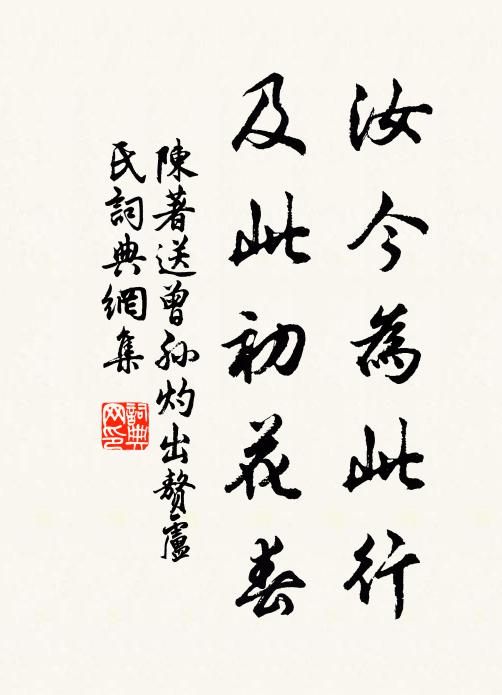 汝今為此行
及此初花春
陳著送曾孫灼出贅盧
氏詞典網集
詞典網印